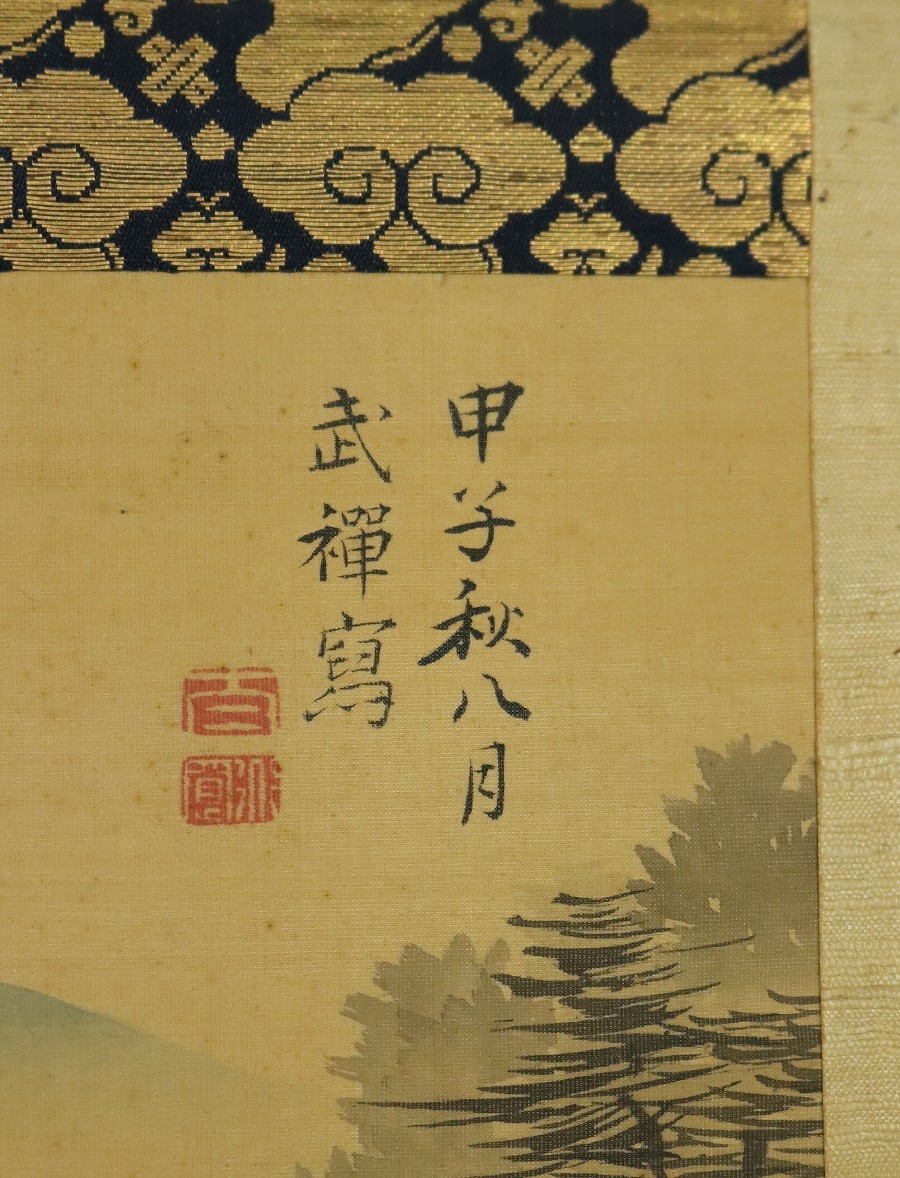 甲子秋八月
武禪寫